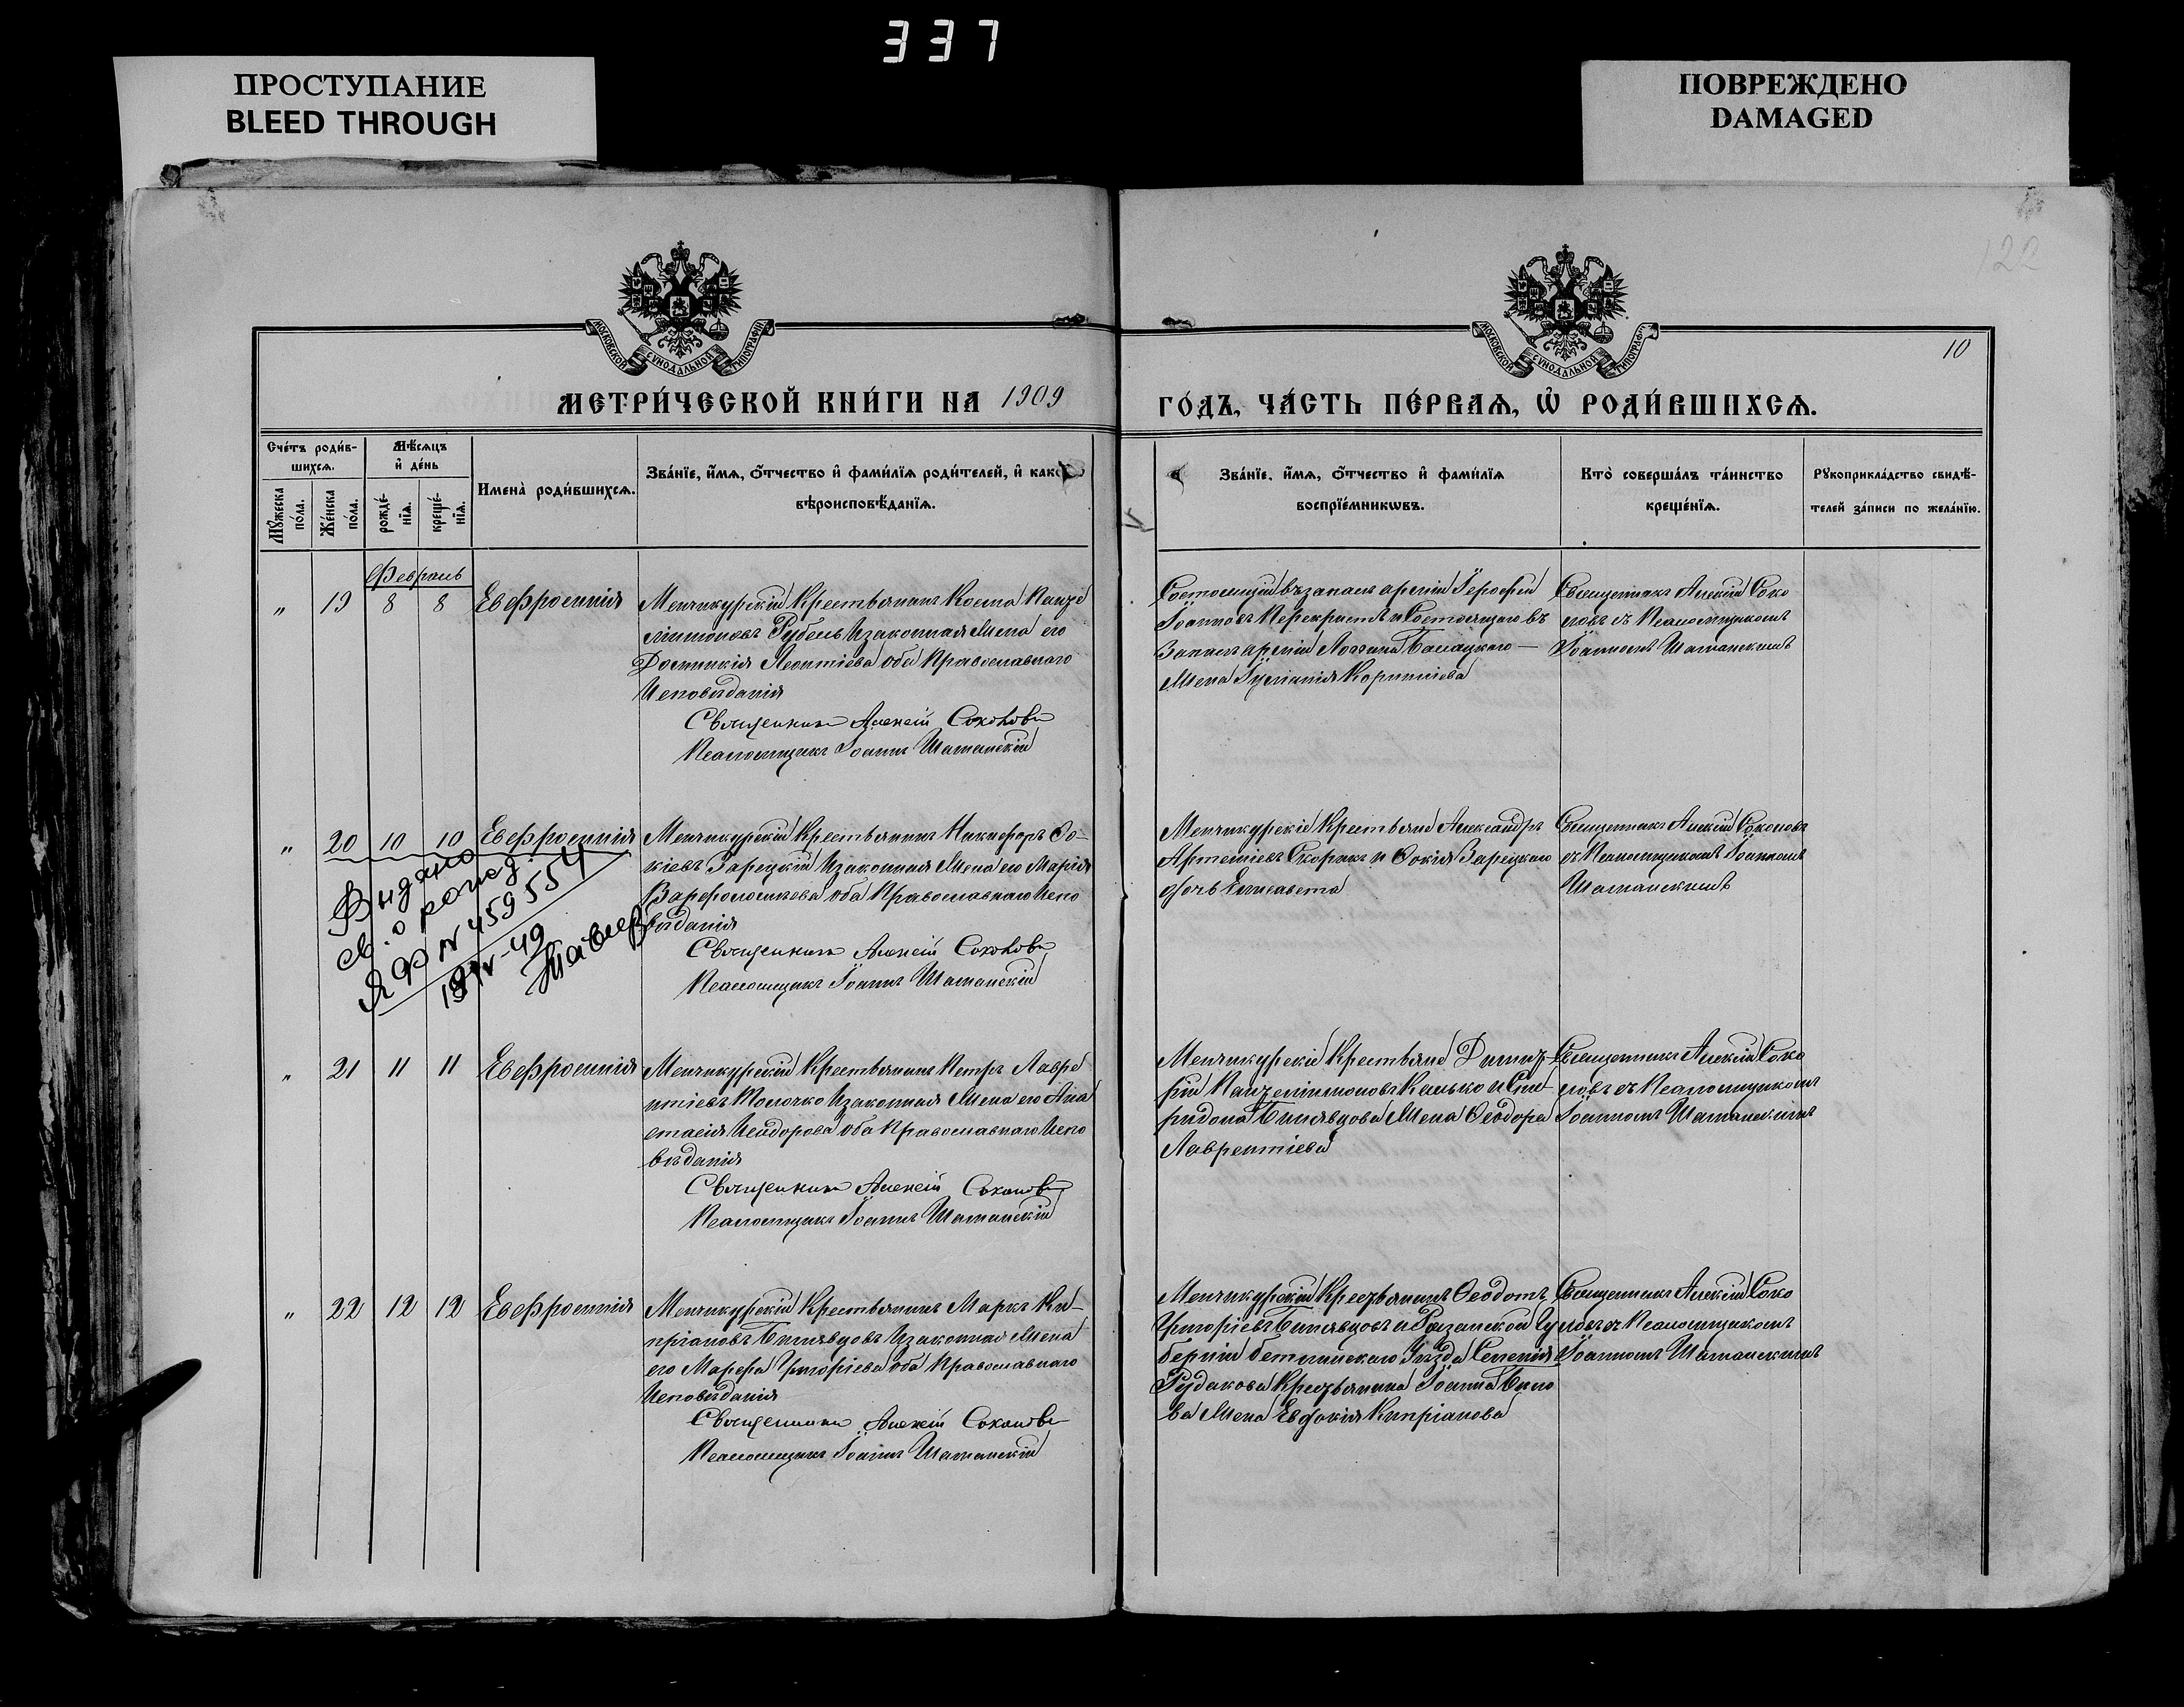 337
ПРОСТУПАНИЕ
BLEED THROUGH
ПОВРЕЖДЕНО
DAMAGED
122
МОСКОВСКОЙ СѴНОДАЛЬНОЙ ТИПОГРАФІИ
МОСКОВСКОЙ СѴНОДАЛЬНОЙ ТИПОГРАФІИ
10
МЕТРИ́ЧЕСКОЙ КНИ́ГИ НА 1909
ГО́ДЪ, ЧА́СТЬ ПЕ́РВАѦ, Ѡ҆ РОДИ́ВШИХСѦ.
Сче́тъ роди́в-
шихсѧ.
Мѣ́сяцъ
и҆ де́нь
Мꙋ́жеска
по́ла.
Же́нска
по́ла.
рожде́-
нїѧ.
креще́-
нїѧ.
Имена̀ роди́вшихсѧ.
Зва́нїе, и҆́мѧ, ѻ҆́тчество и҆ фами́лїѧ роди́телей, и҆ како
вѣроисповѣ́данїѧ.
Зва́нїе, и҆́мѧ, ѻ҆́тчество и҆ фами́лїѧ
воспрїе́мникѡвъ.
Кто̀ соверша́лъ та́инство
креще́нїѧ.
Рꙋкоприкла́дство свидѣ́-
телей за́писи по жела́нїю.
Февраль
" 19 8 8 Евфросинія
Менчикурскій Крестьянинъ Косма Панте
лимоновъ Рубель И законная жена его
Домникія Леонтіева оба Православнаго
Исповѣданія
Священникъ Алексій Соколовъ
Псаломщикъ Іоаннъ Шатанскій
Состоящій въ запасѣ арміи Іерофей
Іоанновъ Перекристъ и Состоящаго въ
Запасѣ арміи Логгина
жена Іуліанія
Священникъ Алексій Соко
ловъ съ Псаломщикомъ
Іоанномъ Шатанскимъ
" 20 10 10 Евфросинія
Менчикурскій Крестьянинъ Никифоръ Фо-
кіевъ Зарецкій И законная жена его Марія
Варфоломеева оба Православнаго Испо
вѣданія
Священникъ Алексій Соколовъ
Псаломщикъ Іоаннъ Шатанскій
Менчикурскіе Крестьяне Александръ
Артеміевъ Скорикъ и Фокія Зарецкаго
дочь Елисавета
Священникъ Алексій Соколовъ
съ Псаломщикомъ Іоанномъ
Шатанскимъ
Выдано
св. о рожд.
ЯФ № 459554
" 21 11 11 Евфросинія
Менчикурскій Крестьянинъ Петръ Лавре
нтіевъ Толочко И законная жена его Ана
стасія Исидорова оба Православнаго Испо
вѣданія
Священникъ Алексій Соколовъ
Псаломщикъ Іоаннъ Шатанскій
Менчикурскіе Крестьяне Димит-
рій Пантелімоновъ Калько и Спи-
ридона Билявцова жена Феодора
Лаврентіева
Священникъ Алексій Соко
ловъ съ Псаломщикомъ
Іоанномъ Шатанскимъ
" 22 12 12 Евфросинія
Менчикурскій Крестьянинъ Маркъ Ки-
пріановъ Билявцовъ И законная жена
его Марфа Григоріева оба Православнаго
Исповѣданія
Священникъ Алексій Соколовъ
Псаломщикъ Іоаннъ Шатанскій
Менчикурскій Крестьянинъ Феодотъ
Григоріевъ Билявцовъ и Рязанской Гу
берніи Уѣзда Селенія
Рудакова Крестьянина Іоанна Било
ва жена Евдокія Кипріанова
Священникъ Алексій Соко
ловъ съ Псаломщикомъ
Іоанномъ Шатанскимъ